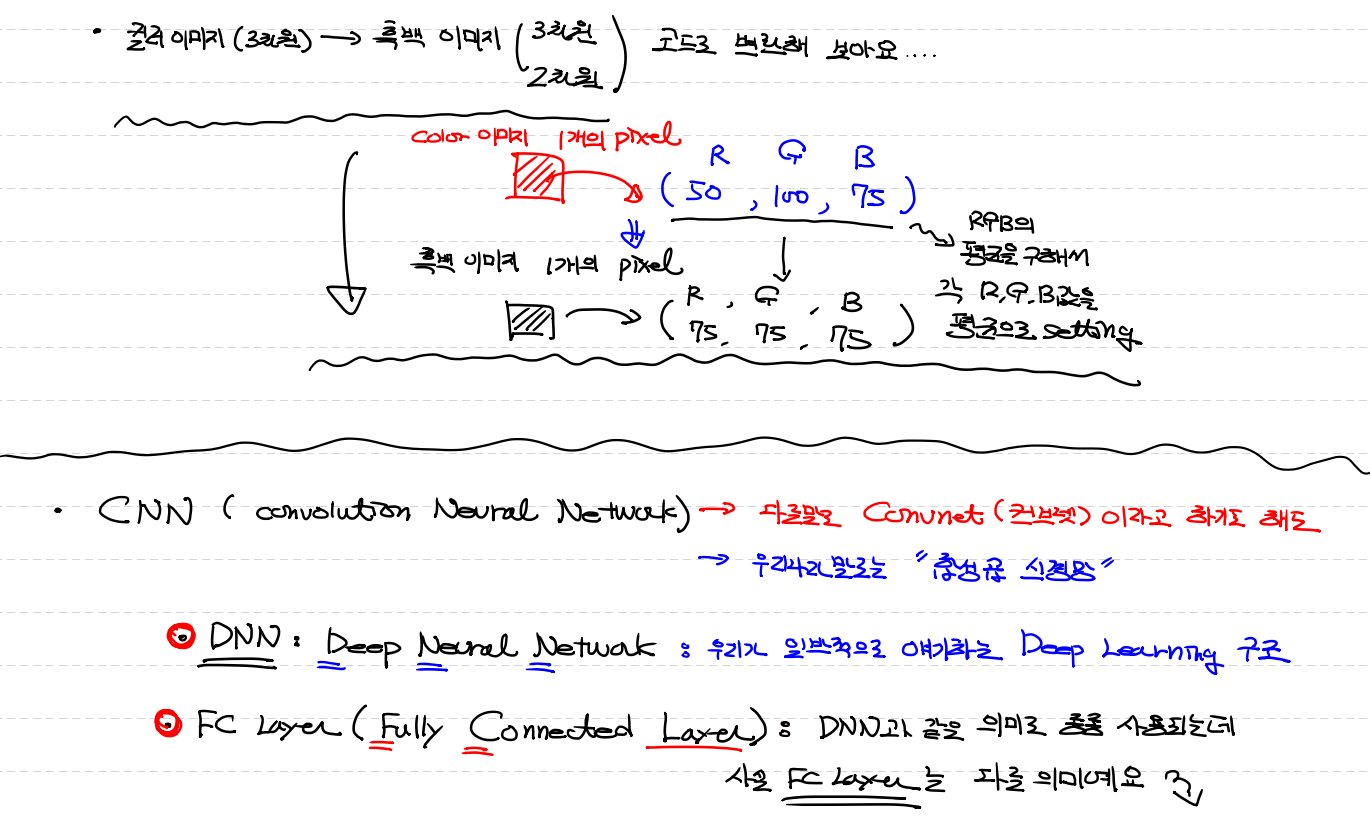 • 컬러 이미지 (3차원) → 흑백 이미지 (3차원 2차원) 코드로 변환해 보아요....
color 이미지 1개의 pixel
R G B
(50, 100, 75)
RGB의
평균을 구해서
각 R, G, B값을
평균으로 setting
흑백 이미지 1개의 pixel
R, G, B
(75, 75, 75)
• CNN ( convolution Neural Network) → 다른말로 Convnet (컨브넷) 이라고 하기도 해요
→ 우리나라 말로는 "합성곱 신경망"
DNN : Deep Neural Network : 우리가 일반적으로 얘기하는 Deep Learning 구조
FC Layer (Fully Connected Layer) : DNN과 같은 의미로 종종 사용되는데
사실 FC Layer는 다른 의미예요